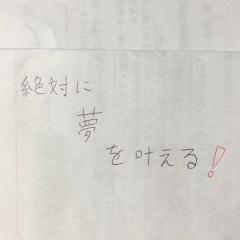 絶対に
夢
を叶える!